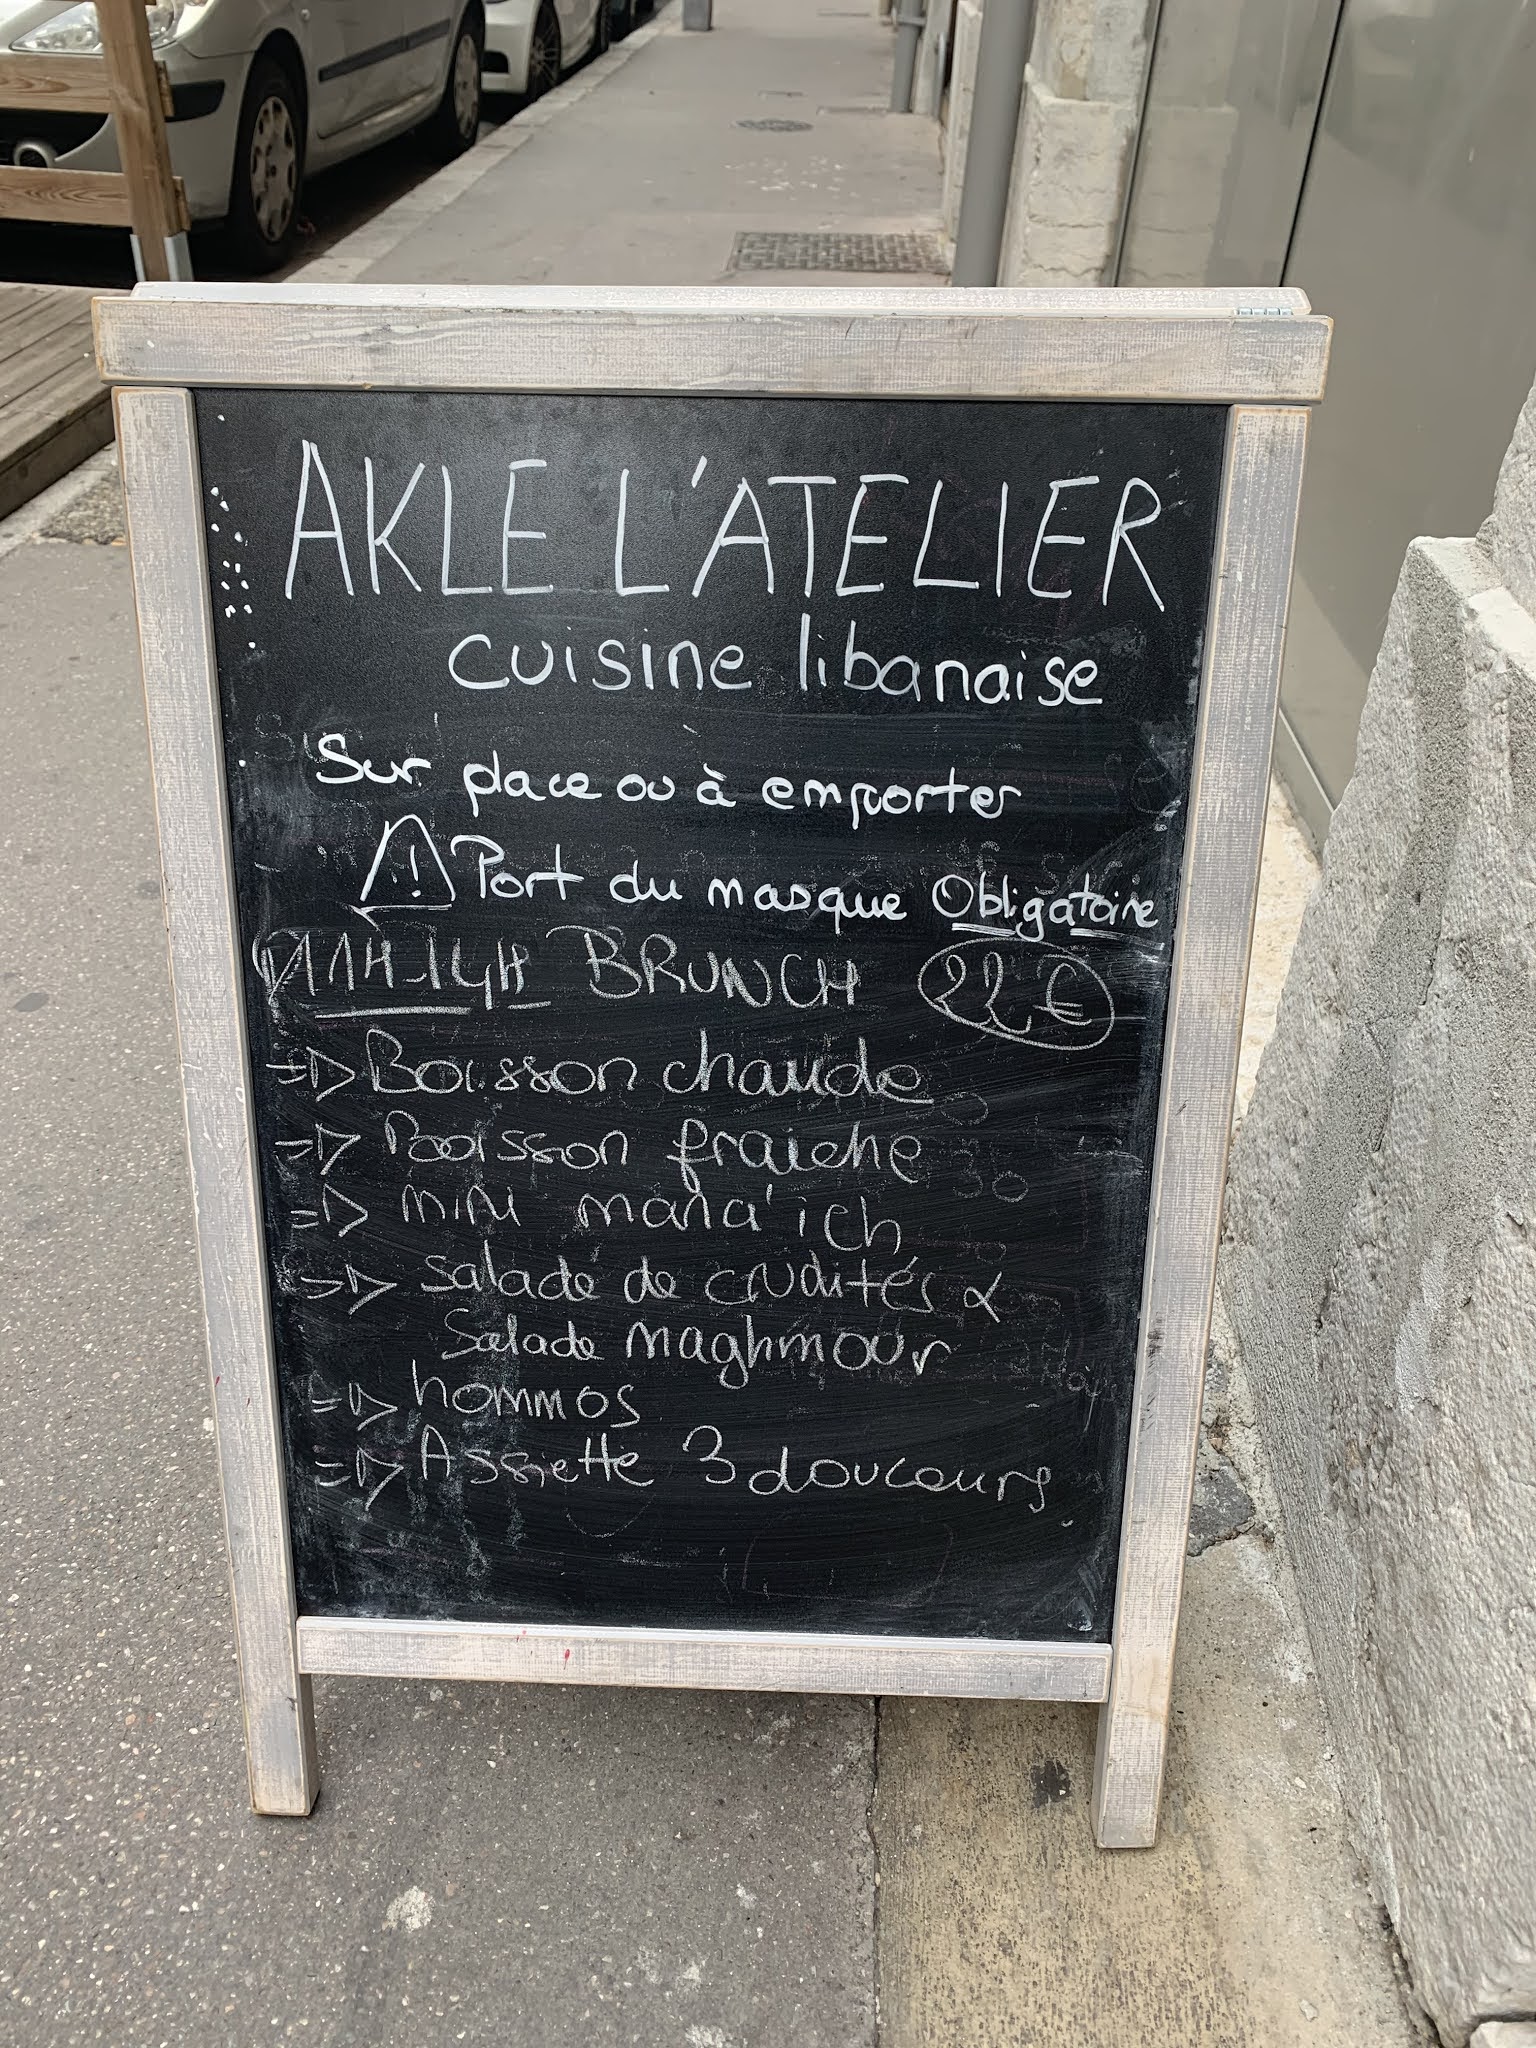 AKLE L'ATELIER
cuisine libanaise
Sur place ou à emporter
! Port du masque Obligatoire
11H-14H BRUNCH 22€
=> Boisson chaude
=> Boisson fraiche
=> mini mana'ich
=> salade de crudités &
Salade Maghmour
=> hommos
=> Assiette 3 douceurs